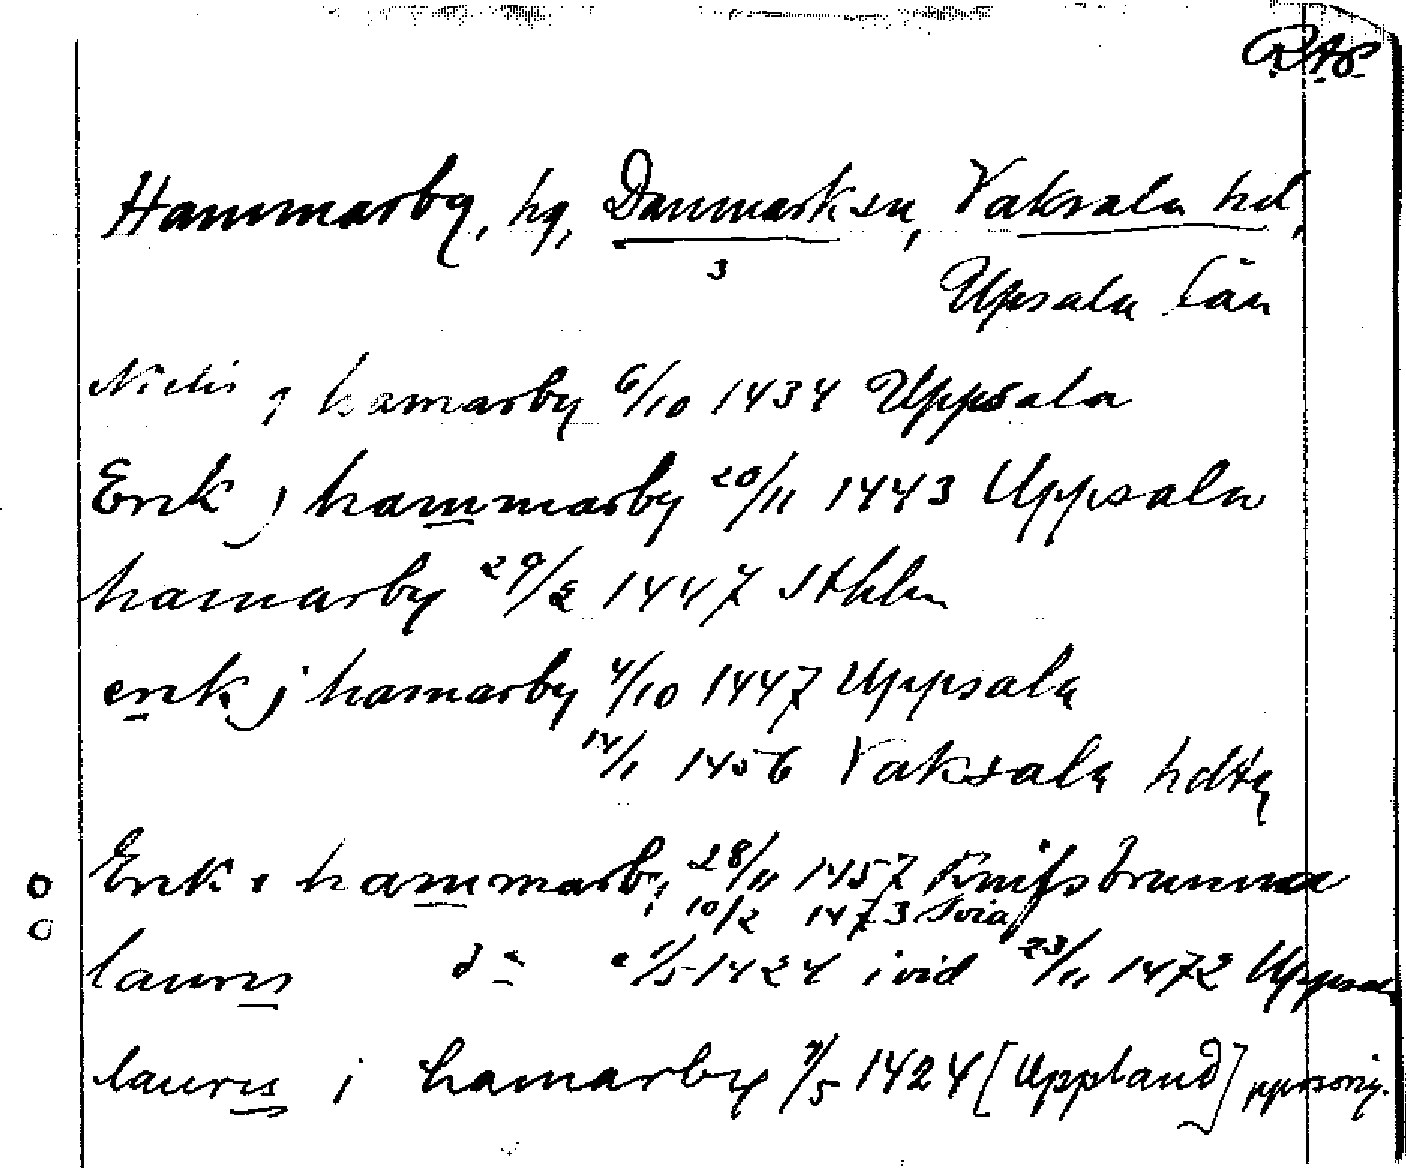 RAP
Hammarby, hg, Danmark sn, Vaksala hd,
3
Upsala län
Niclis j hamarby 6/10 1434 Uppsala
Erik j hammarby 20/11 1443 Uppsala
hamarby 29/2 1447 Sthlm
erik j hamarby 4/10 1447 Uppsala
14/1 1456 Vaksala hdtg
Erik i hammarby 28/11 1457 Knifsbrunna
10/2 1473
lauris do 1/5 1424 i vid 23/11 1472 Uppsala
lauris i hamarby 1/5 1424 [Uppland]